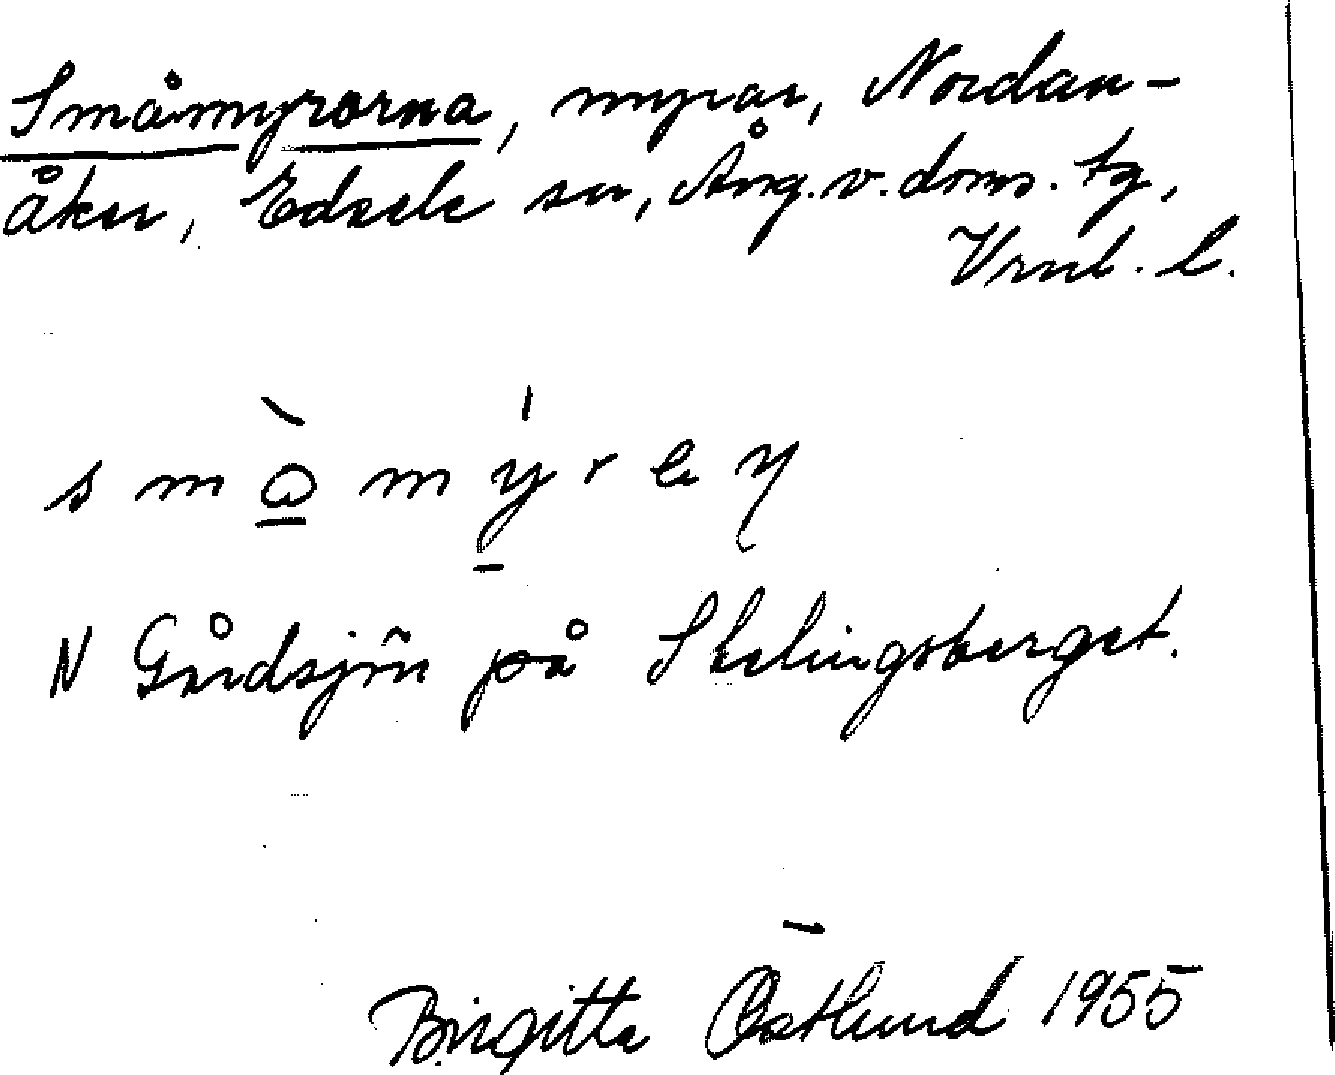 Småmyrorna, myrar, Nordan-
åker, Edsele sn, Ång.v.doms.tg,
Vrnl.l.
smòmýreη
N Gårdsjön på Skelingsberget.
Birgitta Östlund 1955